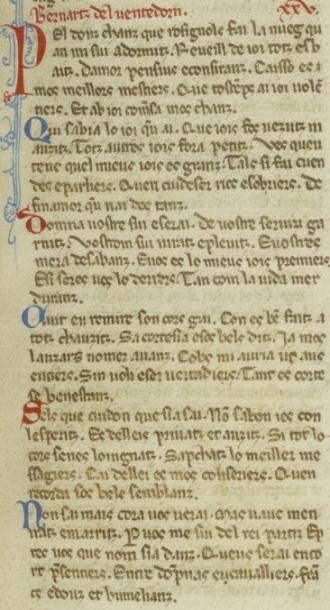 Bernartz del uentedorn. XXV.
Pel dous chanz que rosignols fai la nueg qu
an mi sui adormitz. Reueill de ioi totz esb
aitz. Damor pensius econsiranz. Caisso es i
mos meillors mestiers. Que tostemps ai ioi uolen
tiers. Et ab ioi comensa mos chanz.
Qui sabia lo ioi qu ai. Que iois fos uezutz ni
auzitz. Totz autres iois fora petitz. Vos queu
tenc quel mieus iois es granz. Tals si fai cuen
des eparliers. Quen cuidesser rics esobriers. De
finamor qu nai dos tanz.
Domna uostre sui eserai. De uostre seruizi ga
rnitz. Vostrom sui iuratz epleuitz. Euostres
mera desabanz. Euos es lo mieus iois premiers
Esi seres uos lo derrers. Tan com la uida mer
duranz.
Cant eu remire son cors gai. Con es ben faitz a
totz chauzitz. Sa cortesia eses bels ditz. Ja mos
lauzars nomer auanz. Cobs mi auria us anz
entiers. Sin uoli esser uertadiers. Tant es corte
se benestanz.
Sels que cuidon que sia sai. Non sabon ies con
lesperitz. Es delleis priuatz et aizitz. Si tot lo
cors senes loingnatz. Sapchatz lo meiller me
ssagiers. Cai dellei es mos consiriers. Quem
recorda sos bels semblanz.
Non sai mais cora uos uerai. Mas uauc men
iratz emarritz. P uos me sui del rei partitz Ep
rec uos que nom sia danz. Queus serai encor
rt presentiers. Entre dompnas eucauailliers. Fra
cs edouz et humelianz.